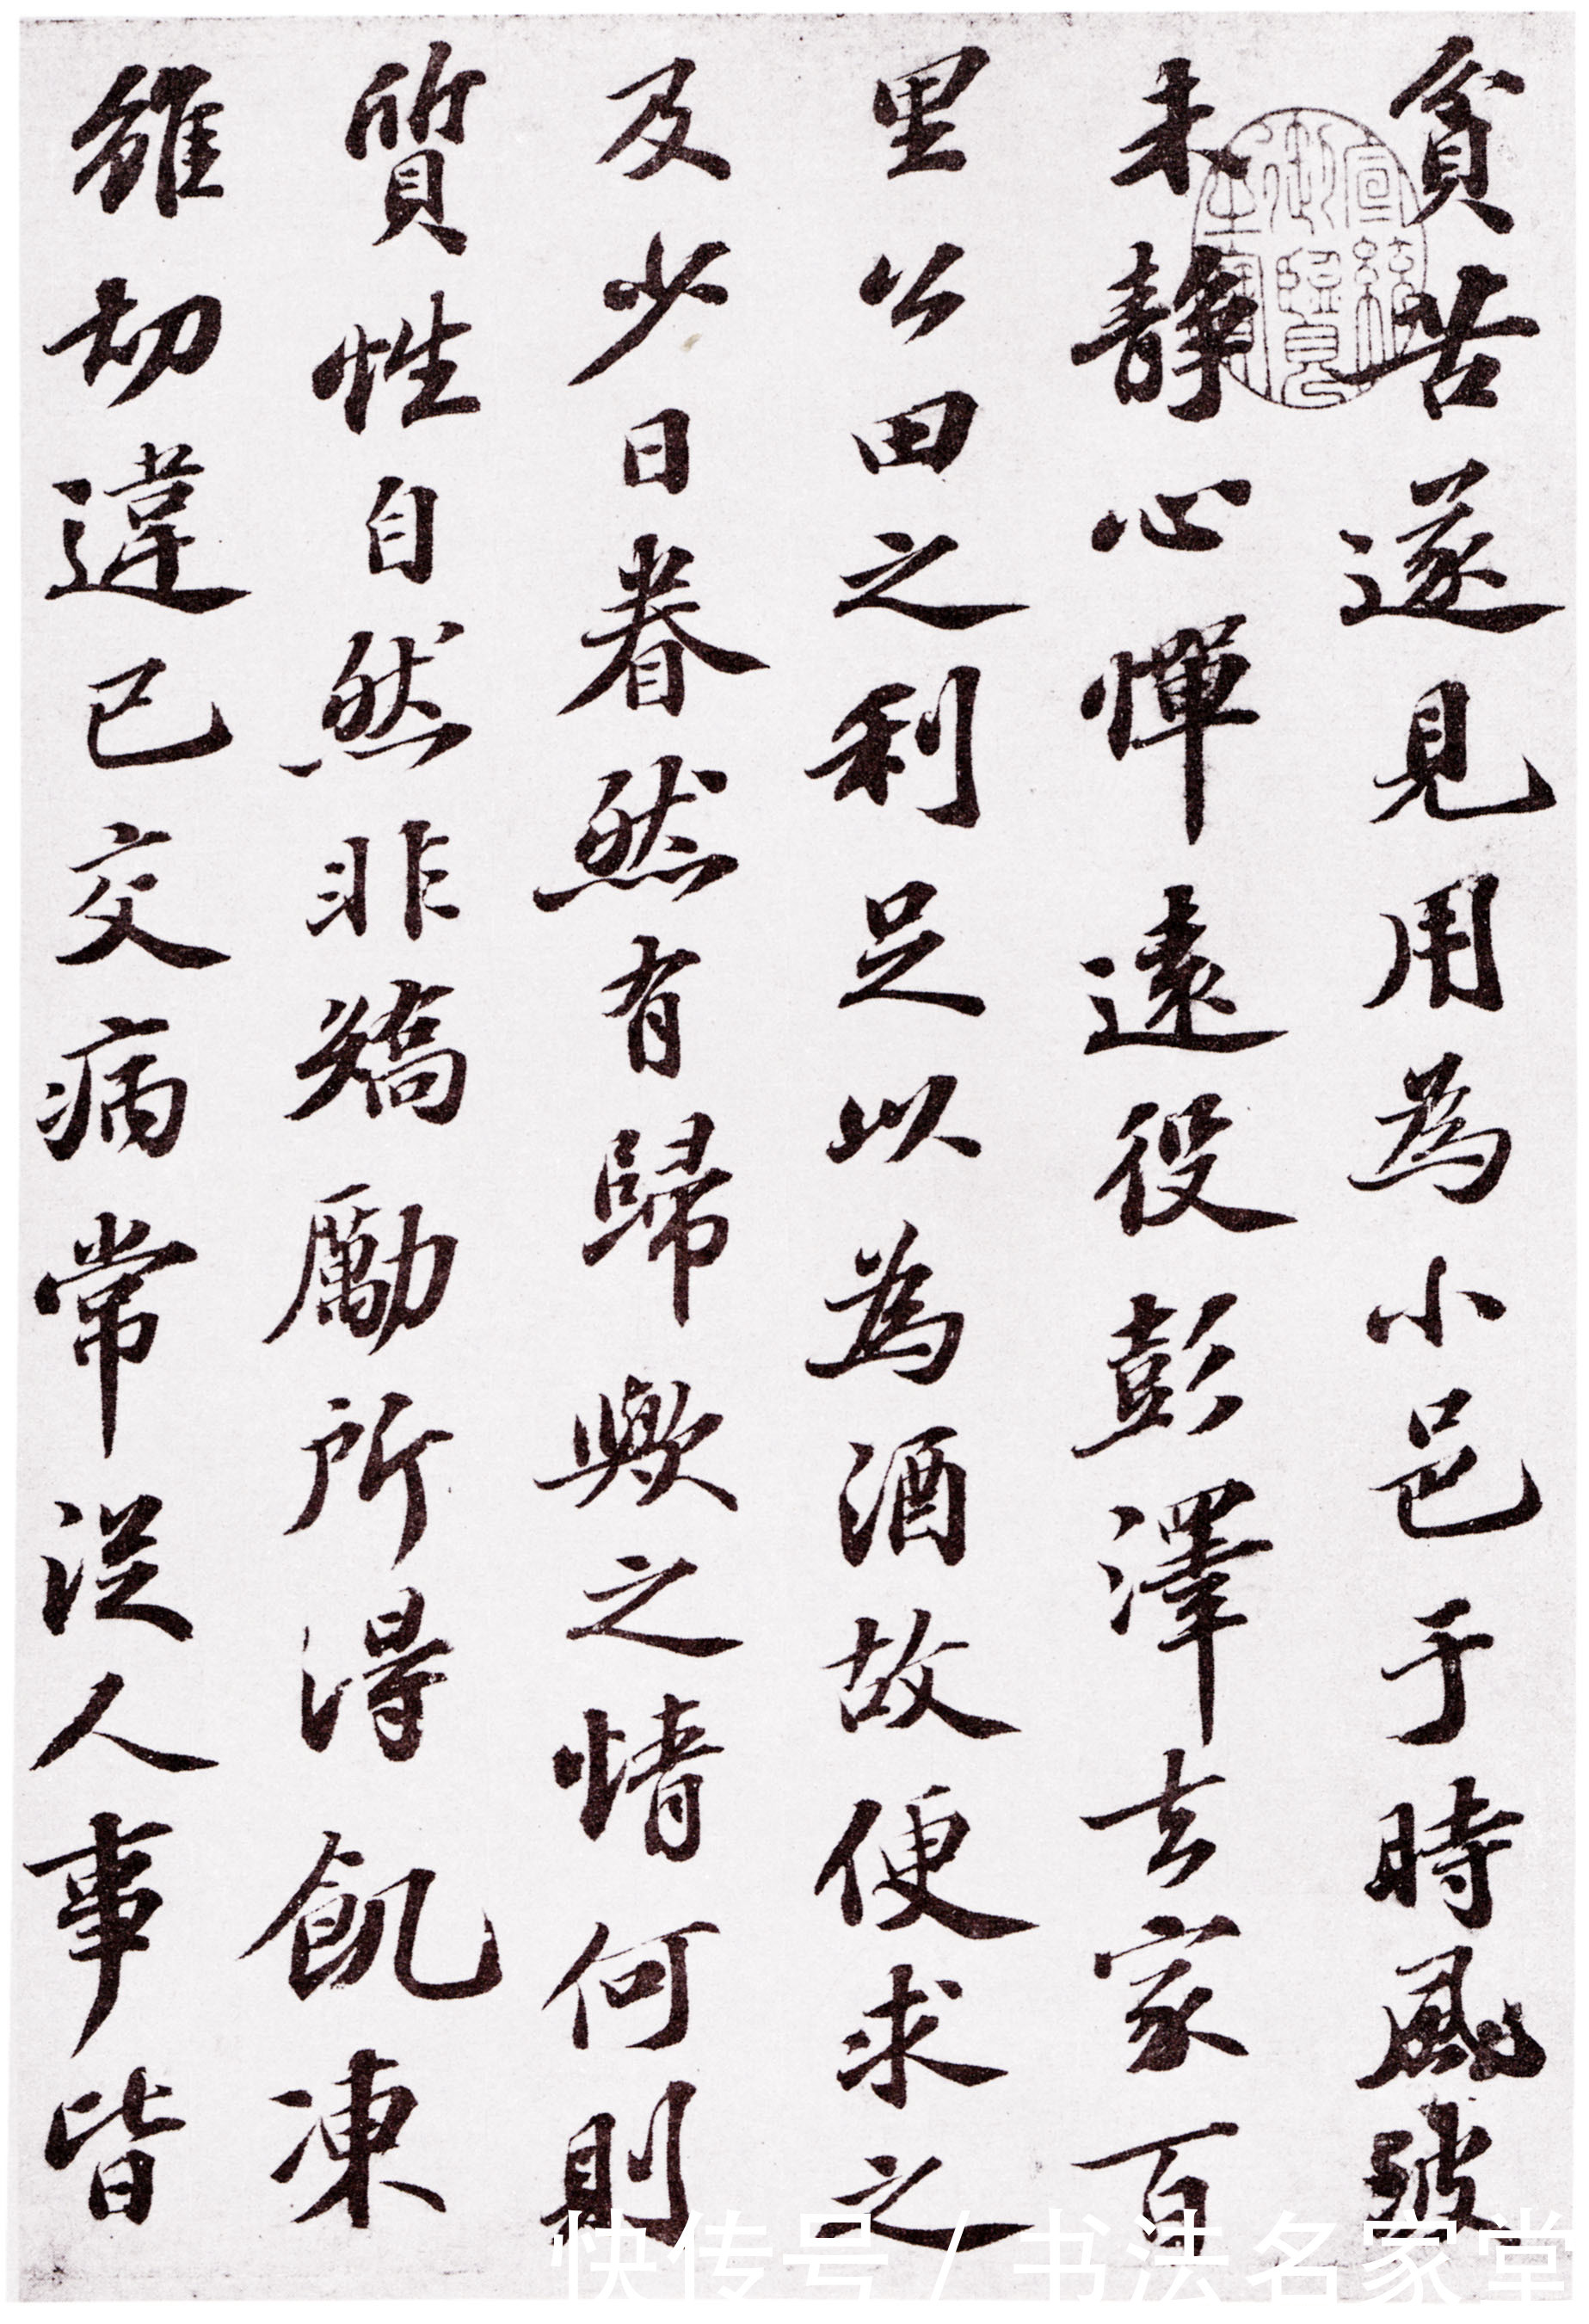 貧苦遂見用為小邑于時風波
未靜心憚遠役彭澤去家百
里公田之利足以為酒故便求之
及少日眷然有歸歟之情何則
質性自然非矯勵所得飢凍
雖切違已交病常從人事皆
宣統御覽之寶
快传号 / 书法名家堂